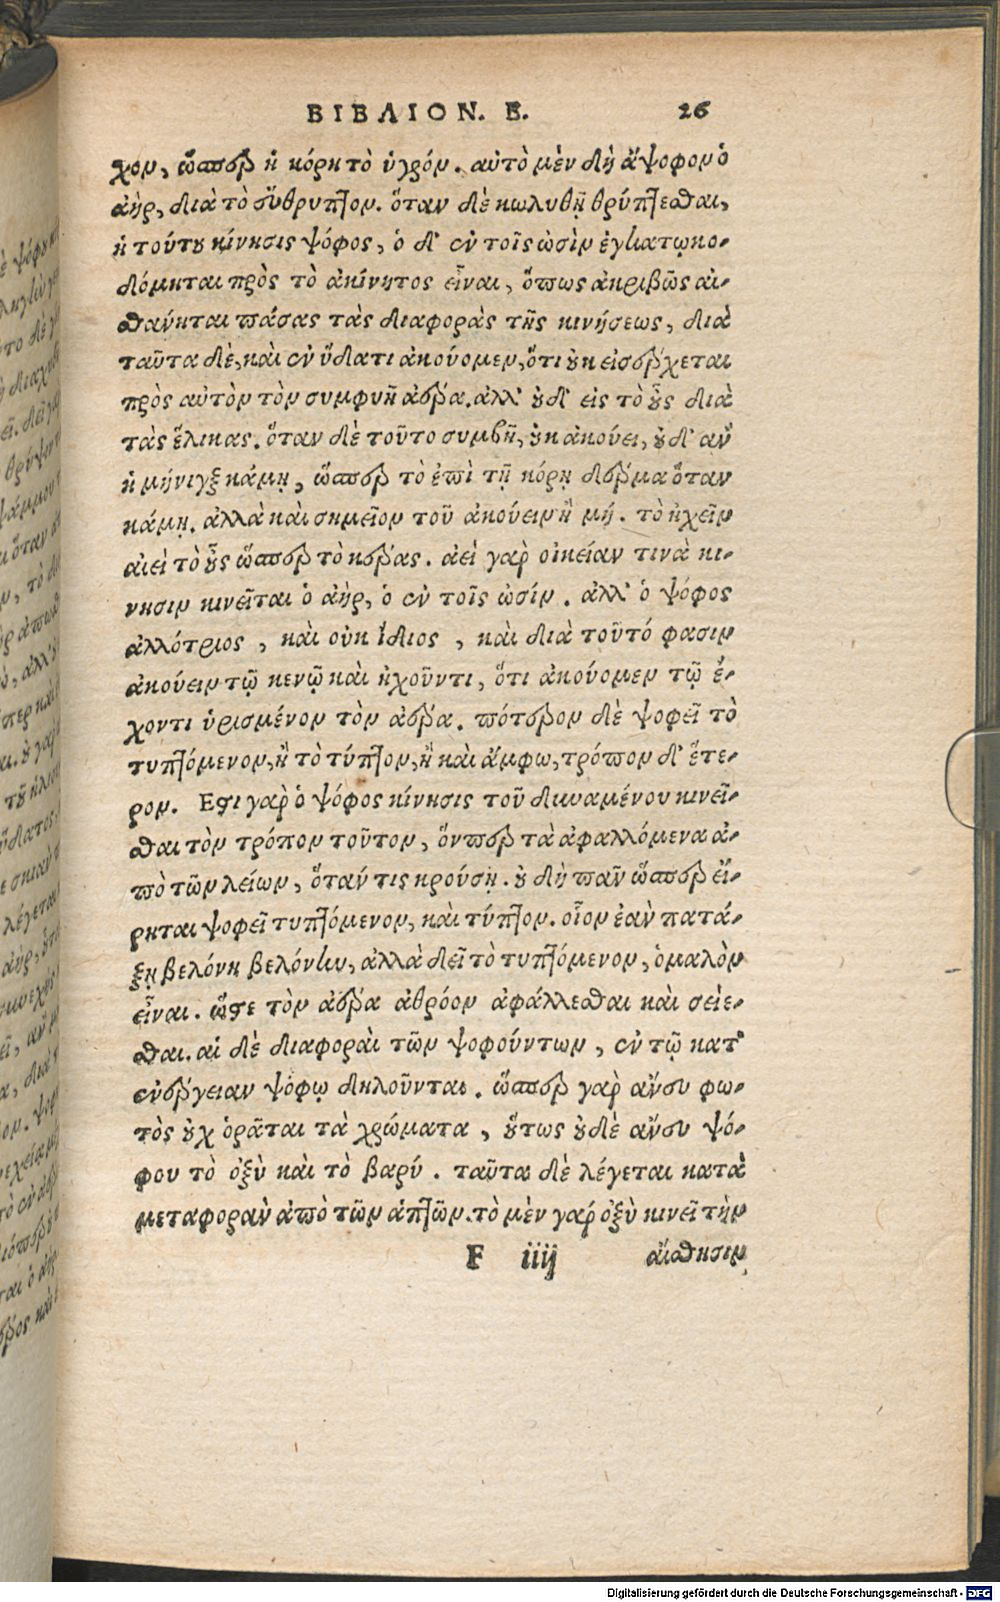 ΒΙΒΛΙΟΝ. Β. 26
χον, ὥσπερ ἡ κόρη τὸ ὑγρόν. αὐτὸ μὲν δὴ ἄψοφον ὁ
ἀὴρ, διὰ τὸ εὔθρυπτον. ὅταν δὲ κωλυθῇ θρύπτεσθαι,
ἡ τούτου κίνησις ψόφος, ὁ δ' ἐν τοῖς ὠσὶν ἐγκατῳκο-
δόμηται πρὸς τὸ ἀκίνητος εἶναι, ὅπως ἀκριβῶς αἰ-
σθάνηται πάσας τὰς διαφορὰς τῆς κινήσεως, διὰ
ταῦτα δὲ, καὶ ἐν ὕδατι ἀκούομεν, ὅτι οὐκ εἰσέρχεται
πρὸς αὐτὸν τὸν συμφυῆ ἀέρα. ἀλλ' οὐδ' εἰς τὸ οὖς διὰ
τὰς ἕλικας. ὅταν δὲ τοῦτο συμβῇ, οὐκ ἀκούει, οὐδ' ἂν
ἡ μήνιγξ κάμῃ, ὥσπερ τὸ ἐπὶ τῇ κόρῃ δέρμα ὅταν
κάμῃ. ἀλλὰ καὶ σημεῖον τοῦ ἀκούειν ἢ μή. τὸ ἠχεῖν
αἰεὶ τὸ οὖς ὥσπερ τὸ κέρας. ἀεὶ γὰρ οἰκείαν τινὰ κι-
νησιν κινεῖται ὁ ἀὴρ, ὁ ἐν τοῖς ὠσίν. ἀλλ' ὁ ψόφος
ἀλλότριος, καὶ οὐκ ἴδιος, καὶ διὰ τοῦτό φασιν
ἀκούειν τῷ κενῷ καὶ ἠχοῦντι, ὅτι ἀκούομεν τῷ ἔ-
χοντι ὡρισμένον τὸν ἀέρα. πότερον δὲ ψοφεῖ τὸ
τυπτόμενον, ἢ τὸ τύπτον, ἢ καὶ ἄμφω, τρόπον δ' ἕτε-
ρον. Εστι γὰρ ὁ ψόφος κίνησις τοῦ δυναμένου κινεῖ-
σθαι τὸν τρόπον τοῦτον, ὅνπερ τὰ ἀφαλλόμενα ἀ-
πὸ τῶν λείων, ὅταν τις κρούσῃ. οὐ δὴ πᾶν ὥσπερ εἴ-
ρηται ψοφεῖ τυπτόμενον, καὶ τύπτον. οἷον ἐὰν πατά-
ξῃ βελόνη βελόνην, ἀλλὰ δεῖ τὸ τυπτόμενον, ὁμαλὸν
εἶναι. ὥστε τὸν ἀέρα ἀθρόον ἀφάλλεσθαι καὶ σείε-
σθαι. αἱ δὲ διαφοραὶ τῶν ψοφούντων, ἐν τῷ κατ'
ἐνέργειαν ψόφῳ δηλοῦνται. ὥσπερ γὰρ ἄνευ φω-
τὸς οὐχ ὁρᾶται τὰ χρώματα, οὕτως οὐδὲ ἄνευ ψό-
φου τὸ ὀξὺ καὶ τὸ βαρύ. ταῦτα δὲ λέγεται κατὰ
μεταφορὰν ἀπὸ τῶν ἁπτῶν. τὸ μὲν γὰρ ὀξὺ κινεῖ τὴν
F iiij αἴσθησιν
Digitalisierung gefördert durch die Deutsche Forschungsgemeinschaft - DFG